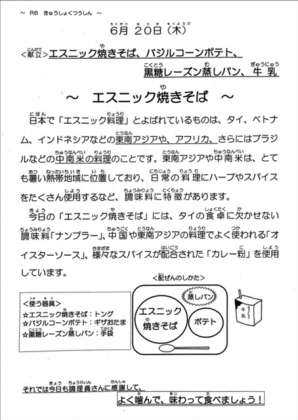 ～ R6 きゅうしょくつうしん ～
6月 20日(木)
<献立>エスニック焼きそば、バジルコーンポテト、
黒糖レーズン蒸しパン、牛乳
～ エスニック焼きそば ～
日本で「エスニック料理」とよばれているものは、タイ、ベトナ
ム、インドネシアなどの東南アジアや、アフリカ、さらにはブラジ
ルなどの中南米の料理のことです。東南アジアや中南米は、とて
も暑い熱帯地域に位置しており、日常の料理にハーブやスパイス
をたくさん使用するなど、調味料に特徴があります。
今日の「エスニック焼きそば」には、タイの食卓に欠かせない
調味料「ナンプラー」、中国や東南アジアの料理でよく使われる「オ
イスターソース」、様々なスパイスが配合された「カレー粉」を使用
しています。
<配ぜんのしかた>
<使う器具>
☆エスニック焼きそば：トング
☆バジルコーンポテト：ギザおたま
☆黒糖レーズン蒸しパン：手袋
蒸しパン
エスニック
焼きそば
ポテト
それでは今日も調理員さんに感謝して、
よく噛んで、味わって食べましょう！